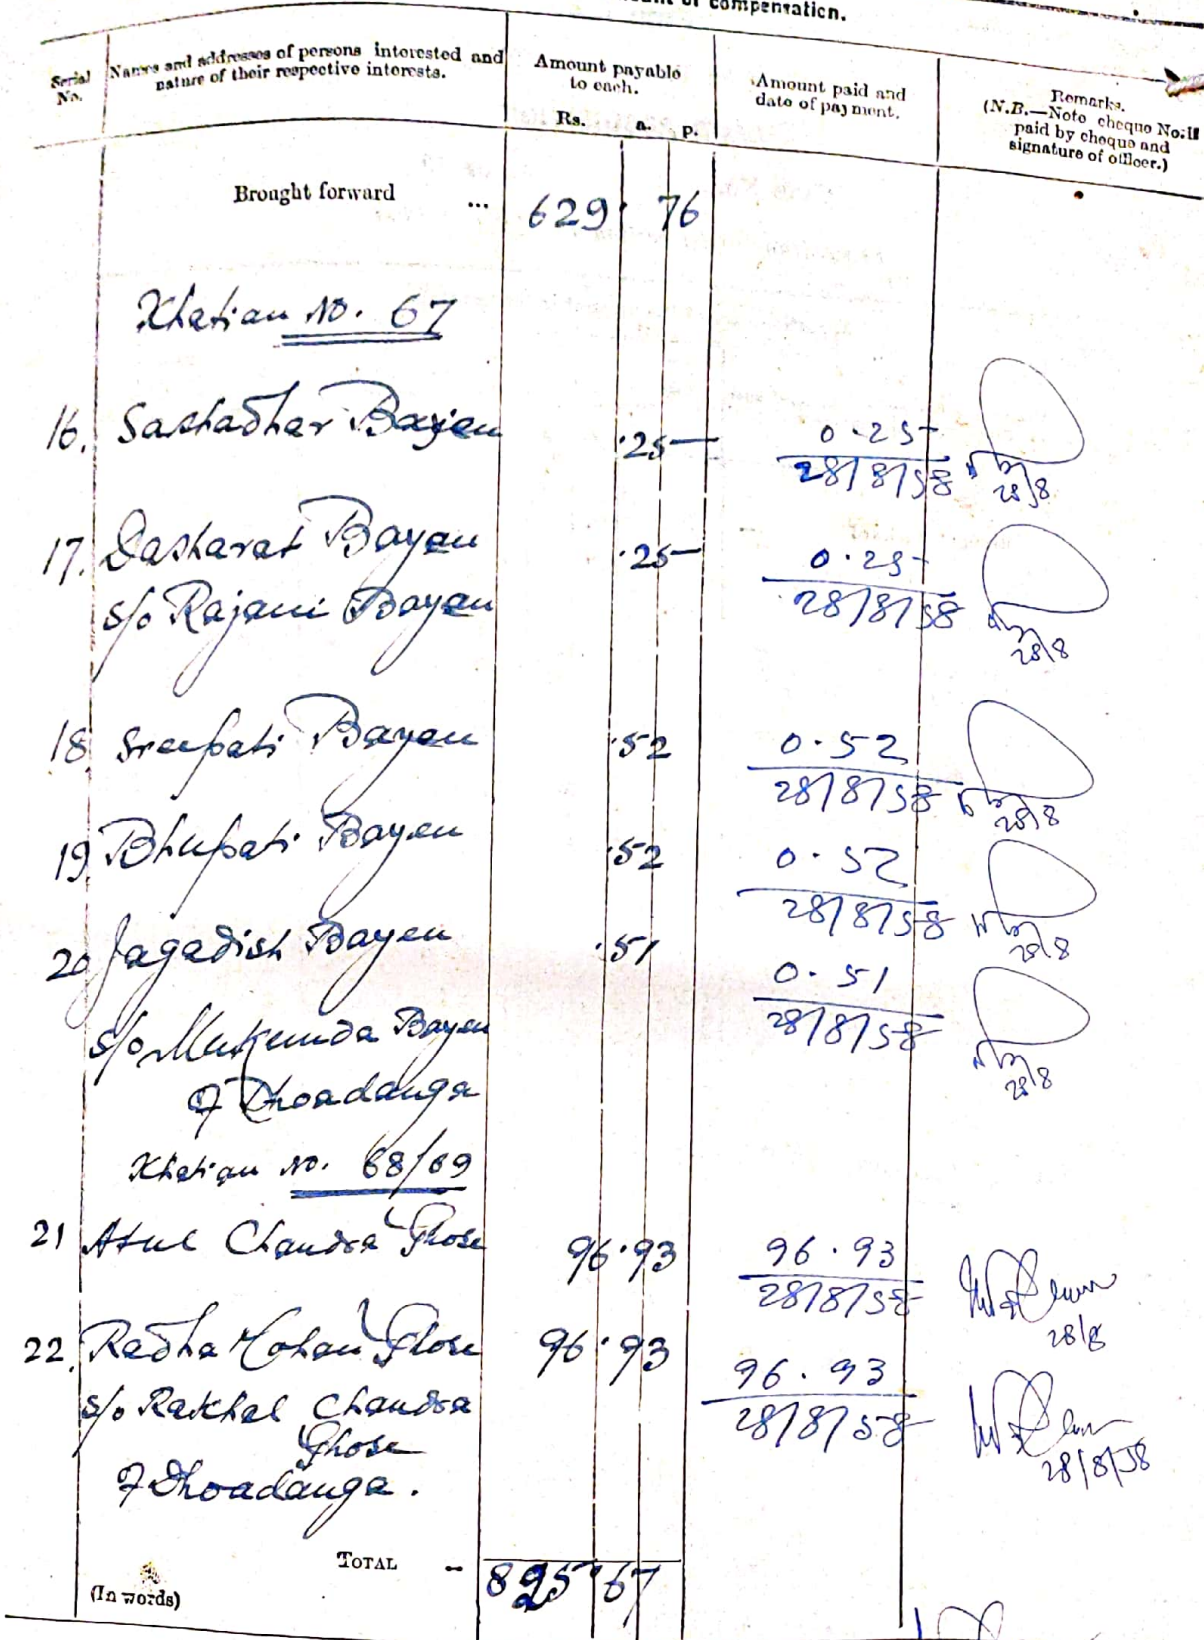 of compensation.
Serial No.
Names and addresses of persons interested and nature of their respective interests.
Amount payable to each.
Rs. a. p.
Amount paid and date of payment.
Remarks.
(N.B.—Note cheque No. if paid by cheque and signature of officer.)
Brought forward ... 629. 76
Khatian No. 67
16. Sashadhar Bayen .25 0.25
28/8/58 28/8
17. Dasharat Bayen .25 0.25
s/o Rajani Bayen 28/8/58 28/8
18. Sreepati Bayen .52 0.52
28/8/58 28/8
19. Bhupati Bayen .52 0.52
28/8/58 28/8
20. Jagadish Bayen .51 0.51
s/o Mukunda Bayen 28/8/58 28/8
of Dhoadanga
Khatian No. 68/69
21 Atul Chandra Ghose 96.93 96.93
28/8/58 28/8
22. Radha Mohan Ghose 96.93 96.93
s/o Rakhal Chandra 28/8/58 28/8/58
Ghose
of Dhoadanga.
TOTAL -- 825.67
(In words)